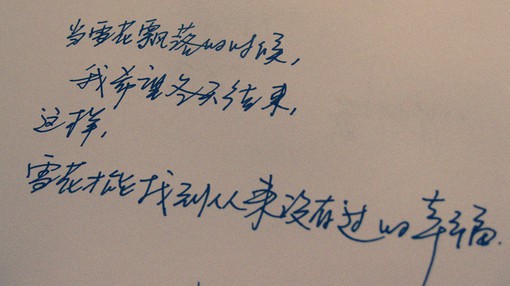 当雪花飘落的时候,
我希望冬天结束,
这样,
雪花才能找到从来没有过的幸福.